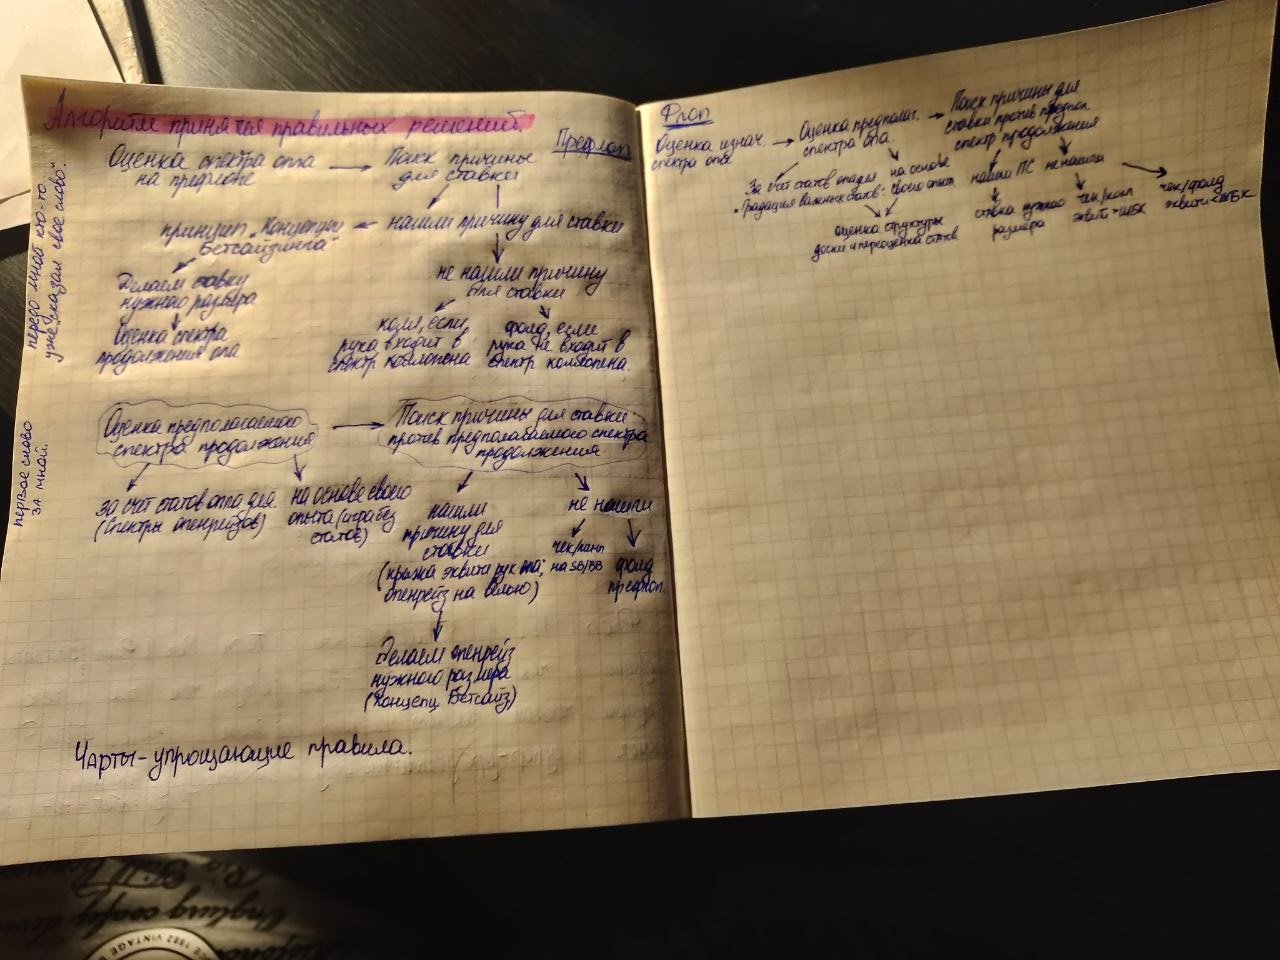 Алгоритм принятия правильных решений.
Префлоп
передо мной кто-то
уже "сказал свое слово".
Оценка спектра оппа
на префлопе
Поиск причины
для ставки
нашли причину для ставки
принцип "Концепции
Бетсайзинга"
Делаем ставку
нужного размера
Оценка спектра
продолжения опа
не нашли причину
для ставки
колл, если
рука входит в
спектр колопена
фолд, если
рука не входит в
спектр колопена.
первое слово
за мной.
Оценка предполагаемого
спектра продолжения
Поиск причины для ставки
против предполагаемого спектра
продолжения
за счёт статов оппа для
(спектры опенрейзов)
на основе своего
опыта (игра без
статов)
нашли
причину для
ставки
(кража эквити рук опа;
опенрейз на велью)
не нашли
чек/
на SB/BB
фолд
префлоп.
Делаем опенрейз
нужного размера
(Концепц. Бетсайз)
Чарты-упрощающие правила.
Флоп
Оценка изнач.
спектра опа
Оценка предполаг.
спектра опа.
Поиск причины для
ставки против предпол.
спектр продолжения
За счёт статов опа для
• Градация важных статов:
на основе
своего опыт.
оценка структуры
доски и переоценка статов.
нашли ПС
ставка нужного
размера
не нашли
чек/колл
эквити > ШБК
чек/фолд
эквити < ШБК